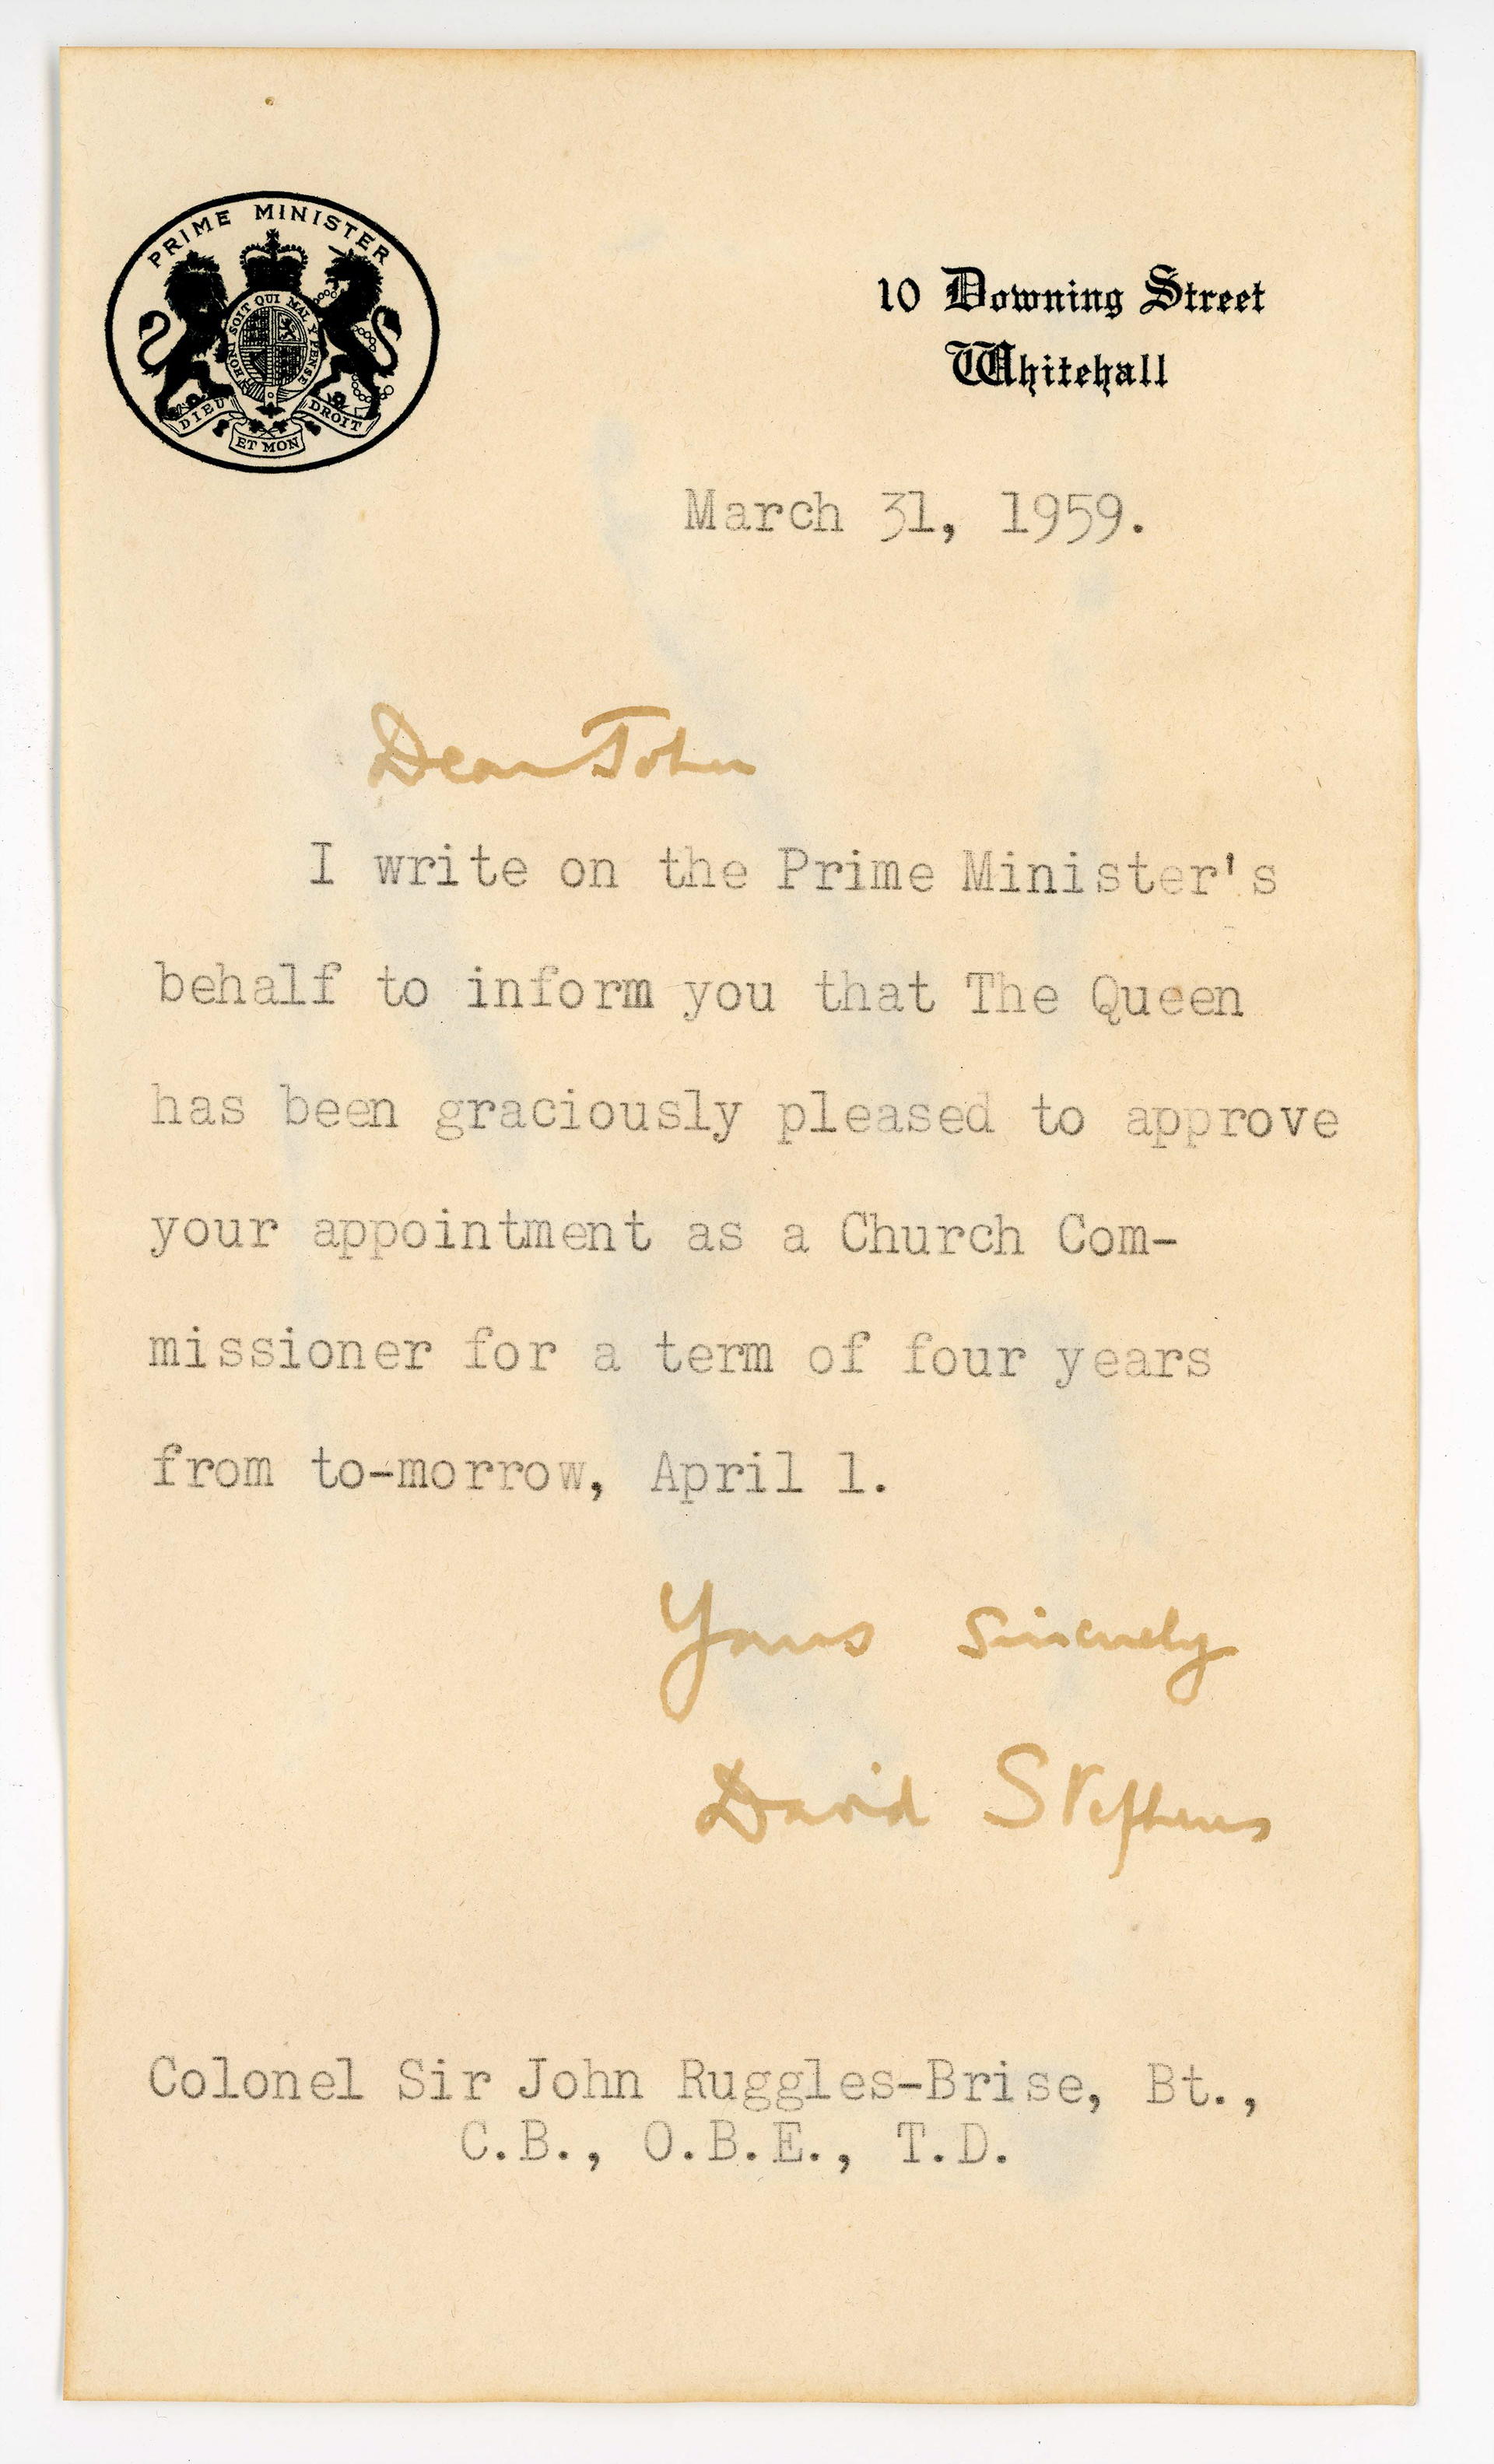 PRIME MINISTER
HONI SOIT QUI MAL Y PENSE
DIEU ET MON DROIT
10 Downing Street
Whitehall
March 31, 1959.
Dear John
I write on the Prime Minister's
behalf to inform you that The Queen
has been graciously pleased to approve
your appointment as a Church Com-
missioner for a term of four years
from to-morrow, April 1.
Yours sincerely
David Stephens
Colonel Sir John Ruggles-Brise, Bt.,
C.B., O.B.E., T.D.